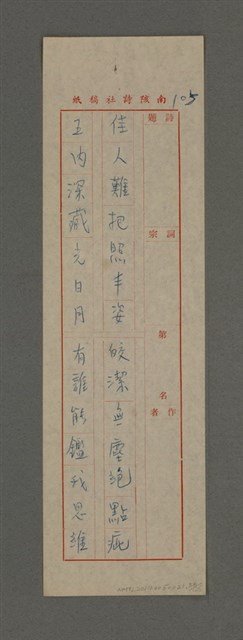 南陂詩社稿紙
105
詩題
詞宗
第 名
作者
佳人難把照丰姿 皎潔無塵絕點疵
玉內深藏光日月 有誰能鑑我思維